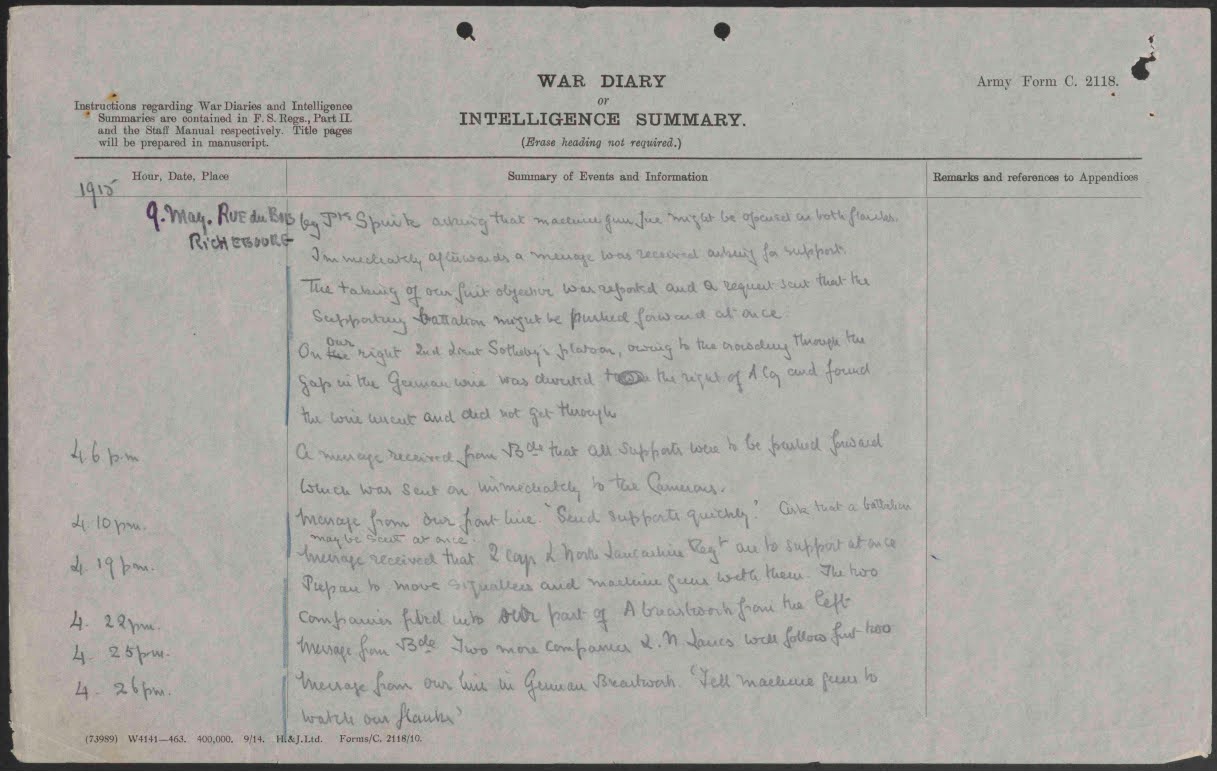 WAR DIARY
or
INTELLIGENCE SUMMARY.
(Erase heading not required.)
Army Form C. 2118.
Instructions regarding War Diaries and Intelligence
Summaries are contained in F. S. Regs., Part II.
and the Staff Manual respectively. Title pages
will be prepared in manuscript.
Hour, Date, Place
Summary of Events and Information
Remarks and references to Appendices
1915
9. May. RUE du BOIS
RICHEBOURG
by asking that machine gun fire might be opened on both flanks.
Immediately afterwards a message was received asking for support.
The taking of our first objective was reported and a request sent that the
Supporting battalion might be pushed forward at once.
On our right 2nd Lieut Sotheby's platoon, owing to the crowding through the
gap in the German wire was diverted to the right of A Coy and found
the wire uncut and did not get through
4 6 p.m A message received from Bde that all supports were to be pushed forward
which was sent on immediately to the Camerons.
4 10 pm. Message from our front line. "Send supports quickly." Ask that a battalion
may be sent at once.
4. 19 pm. Message received that 2 coys L North Lancashire Regt are to support at once
Prepare to move signallers and machine guns with them. The two
4. 22 pm. Companies filed into our part of A breastwork from the left
4. 25 pm. Message from Bde Two more companies L. N. Lancs will follow first two
4. 26 pm. Message from our line in German Breastwork. "Tell machine guns to
watch our flanks"
(73989) W4141—463. 400,000. 9/14. H.&J.Ltd. Forms/C. 2118/10.